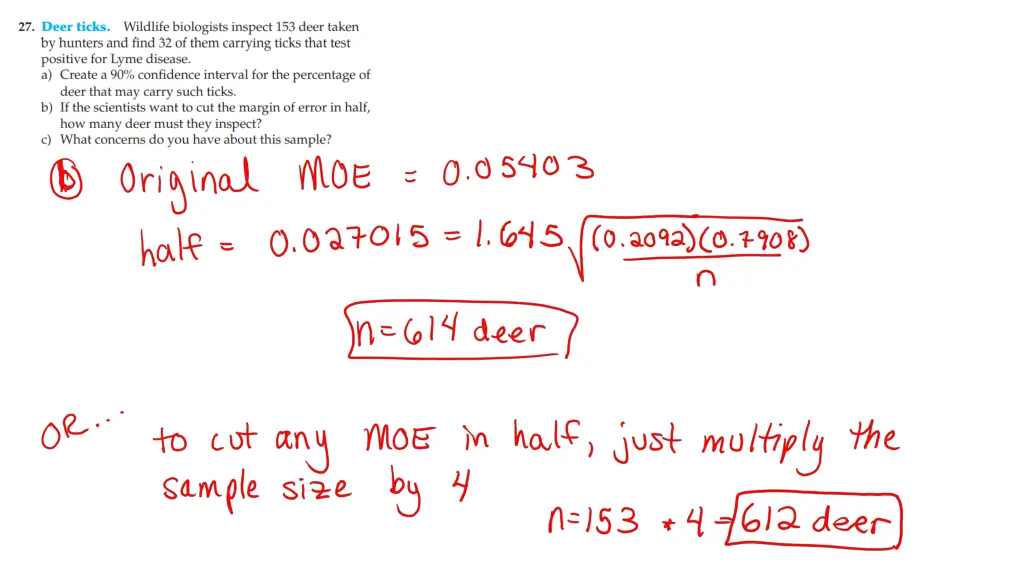 27. Deer ticks. Wildlife biologists inspect 153 deer taken
by hunters and find 32 of them carrying ticks that test
positive for Lyme disease.
a) Create a 90% confidence interval for the percentage of
deer that may carry such ticks.
b) If the scientists want to cut the margin of error in half,
how many deer must they inspect?
c) What concerns do you have about this sample?
b Original MOE = 0.05403
half = 0.027015 = 1.645 √((0.2092)(0.7908)/n)
n=614 deer
OR... to cut any MOE in half, just multiply the
sample size by 4
n=153 * 4 = 612 deer